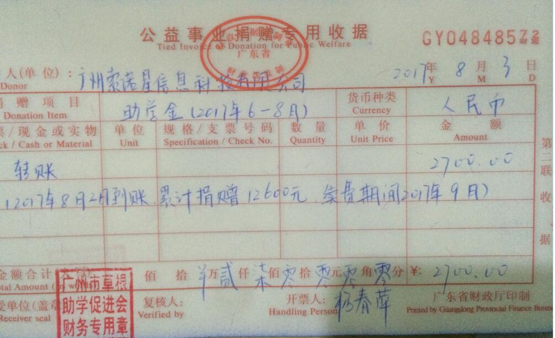 公益事业捐赠专用收据
Tied Invoice of Donation for Public Welfare
广东省
GY04848522
人(单位): 广州索诺星信息科技有限公司 2017年 8 月 3 日
Donor Y M D
赠 项 目 助学金(2017年6-8月) 货币种类 人民币
Donation Item Currency
票/现金或实物 单 位 规 格 / 支 票 号 码 数 量 单 价 金 额
ck / Cash or Material Unit Specification / Check No. Quantity Unit Price Amount
转账 2700.00
(2017年8月2日到账 累计捐赠12600元, 续费期间2017年9月)
第二联 收据
金额合计 佰 拾 万贰仟柒佰零拾零元零角零分 ¥: 2700.00
otal Amount
广州市草根
助学促进会
财务专用章
受单位(盖章 复核人: 开票人: 杨春萍 广东省财政厅印制
Receiver seal Verified by Handling Person Printed by Guangdong Provincial Finance Bureau